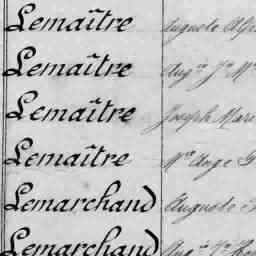 Lemaître Auguste
Lemaître Augte Jn Mie
Lemaître Joseph Mari
Lemaître Mie Ange
Lemarchand Auguste
Lemarchand Augte